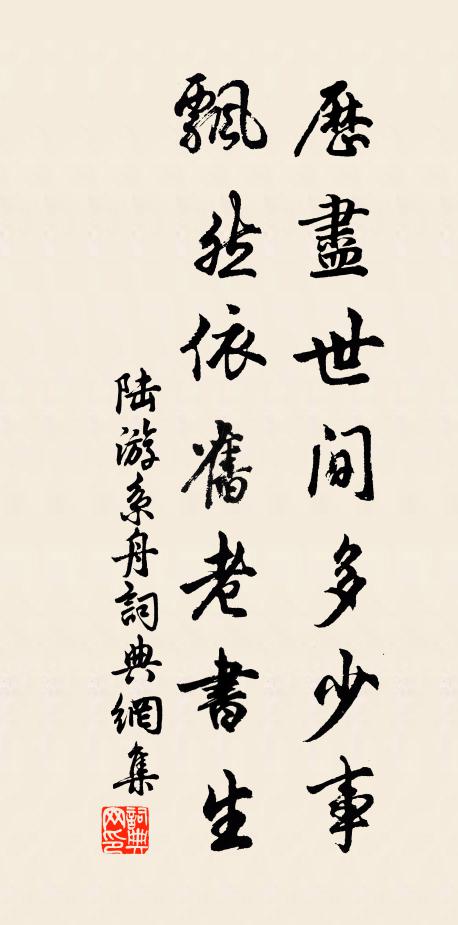 歷盡世間多少事
飄然依舊老書生
陆游系舟詞典網集
詞典网印